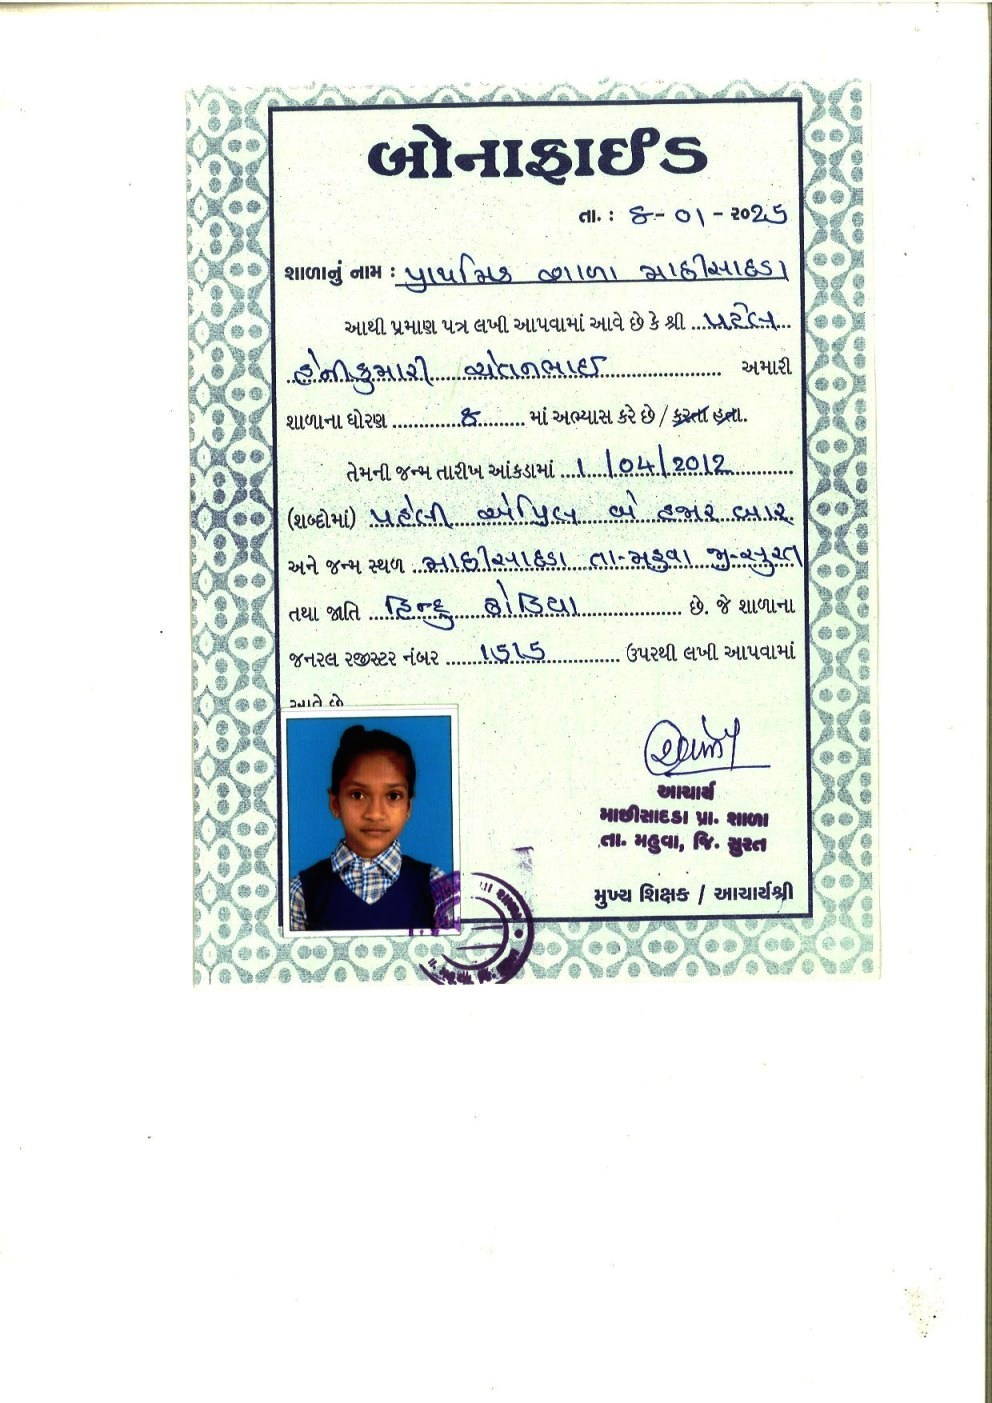 બોનાફાઈડ
તા. : ૪- ૦૧ - ૨૦૨૫
શાળાનું નામ : પ્રાથમિક શાળા માછીસાદડા
આથી પ્રમાણ પત્ર લખી આપવામાં આવે છે કે શ્રી ...પટેલ...
હેનીકુમારી ચેતનભાઈ ............ અમારી
શાળાના ધોરણ ............૪........ માં અભ્યાસ કરે છે / કરતા હતા.
તેમની જન્મ તારીખ આંકડામાં ...1/04/2012............
(શબ્દોમાં) પહેલી એપ્રિલ બે હજાર બાર
અને જન્મ સ્થળ ..માછીસાદડા તા-મહુવા જી-સુરત
તથા જાતિ ..હિન્દુ ધોડિયા.................. છે. જે શાળાના
જનરલ રજીસ્ટર નંબર ......1515............. ઉપરથી લખી આપવામાં
આવે છે
આચાર્ય
માછીસાદડા પ્રા. શાળા
તા. મહુવા, જિ. સુરત
મુખ્ય શિક્ષક / આચાર્યશ્રી